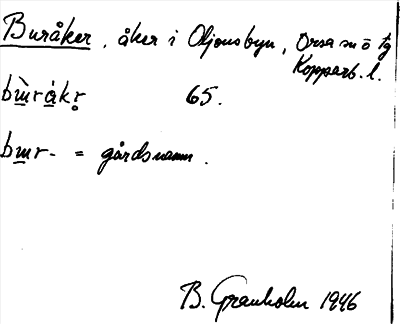 Buråker, åker i Oljonsbyn, Orsa sn ö tg
Kopparb. l.
bɯ̀rákr̥ 65.
bɯr- = gårdsnamn.
B. Granholm 1946